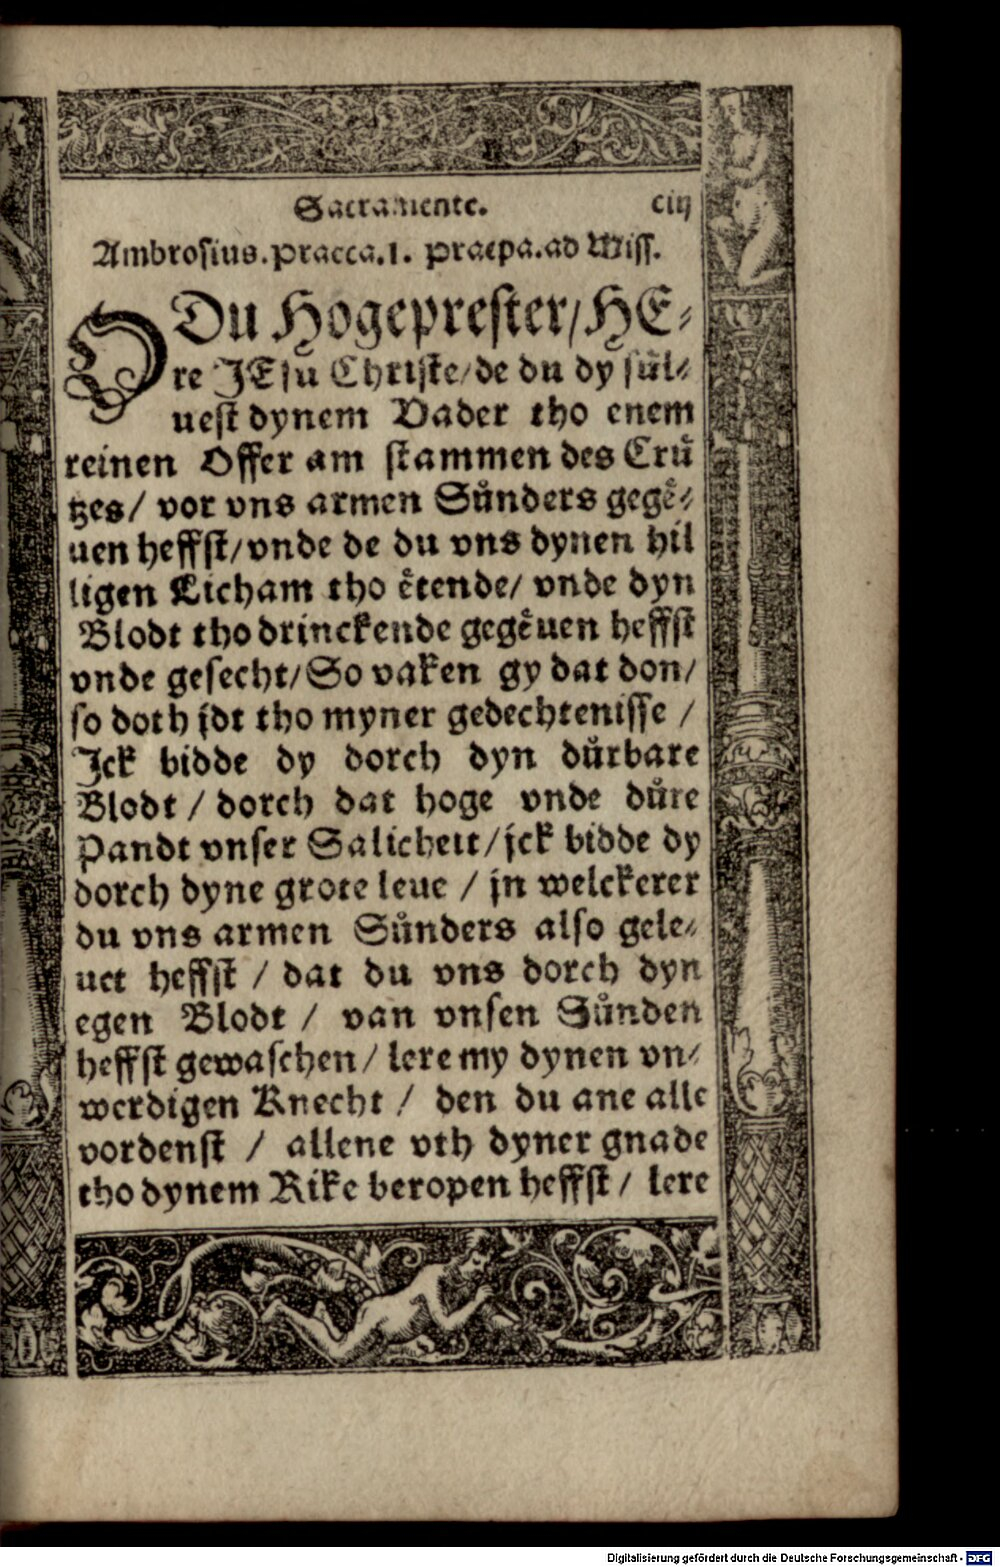 Sacramente. ciij
Ambrosius.praeca.1. praepa.ad Miss.
O Du Hogeprester/HE⸗
re JEsu Christe/de du dy sůl⸗
uest dynem Vader tho enem
reinen Offer am stammen des Crů
tzes/ vor vns armen Sůnders gegě⸗
uen heffst/vnde de du vns dynen hil
ligen Licham tho ětende/ vnde dyn
Blodt tho drinckende gegěuen heffst
vnde gesecht/So vaken gy dat don/
so doth jdt tho myner gedechtenisse /
Jck bidde dy dorch dyn důrbare
Blodt / dorch dat hoge vnde důre
Pandt vnser Salicheit/jck bidde dy
dorch dyne grote leue / jn welckerer
du vns armen Sůnders also gele⸗
uet heffst / dat du vns dorch dyn
egen Blodt / van vnsen Sůnden
heffst gewaschen/ lere my dynen vn⸗
werdigen Knecht / den du ane alle
vordenst / allene vth dyner gnade
tho dynem Rike beropen heffst / lere
Digitalisierung gefördert durch die Deutsche Forschungsgemeinschaft - DFG